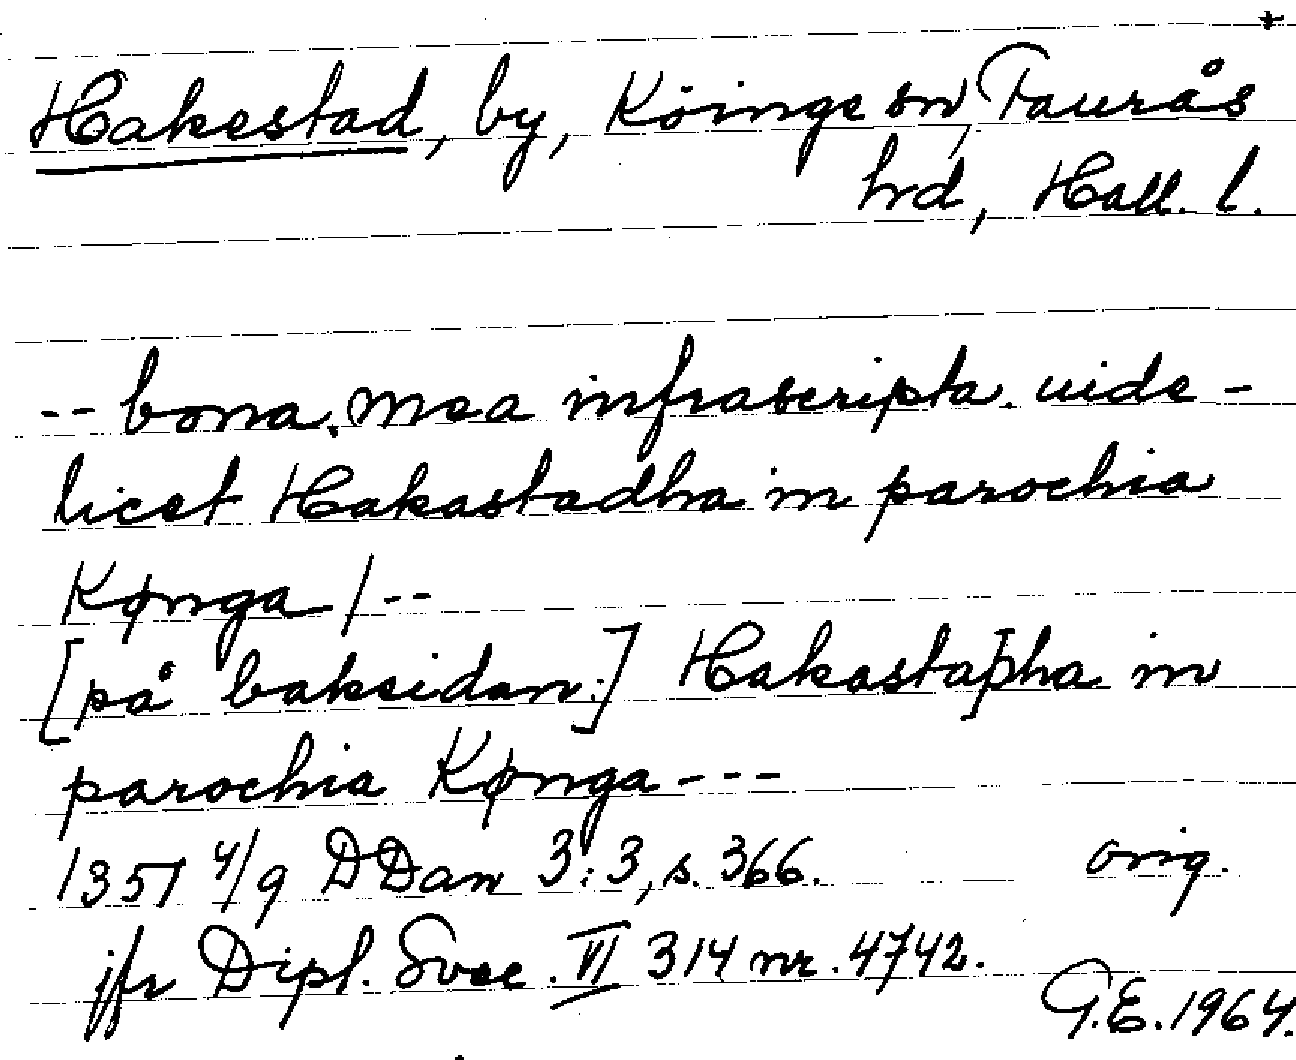 Hakestad, by, Köinge sn, Faurås
hrd, Hall. l.
-- bona. mea infrascripta. uide-
licet Hakastadha in parochia
Kønga / --
[på baksidan:] Hakastapha in
parochia Kønga ---
1351 4/9 DDan 3:3, s. 366. orig.
jfr Dipl. Svec. VI 314 nr. 4742.
G.E. 1964.